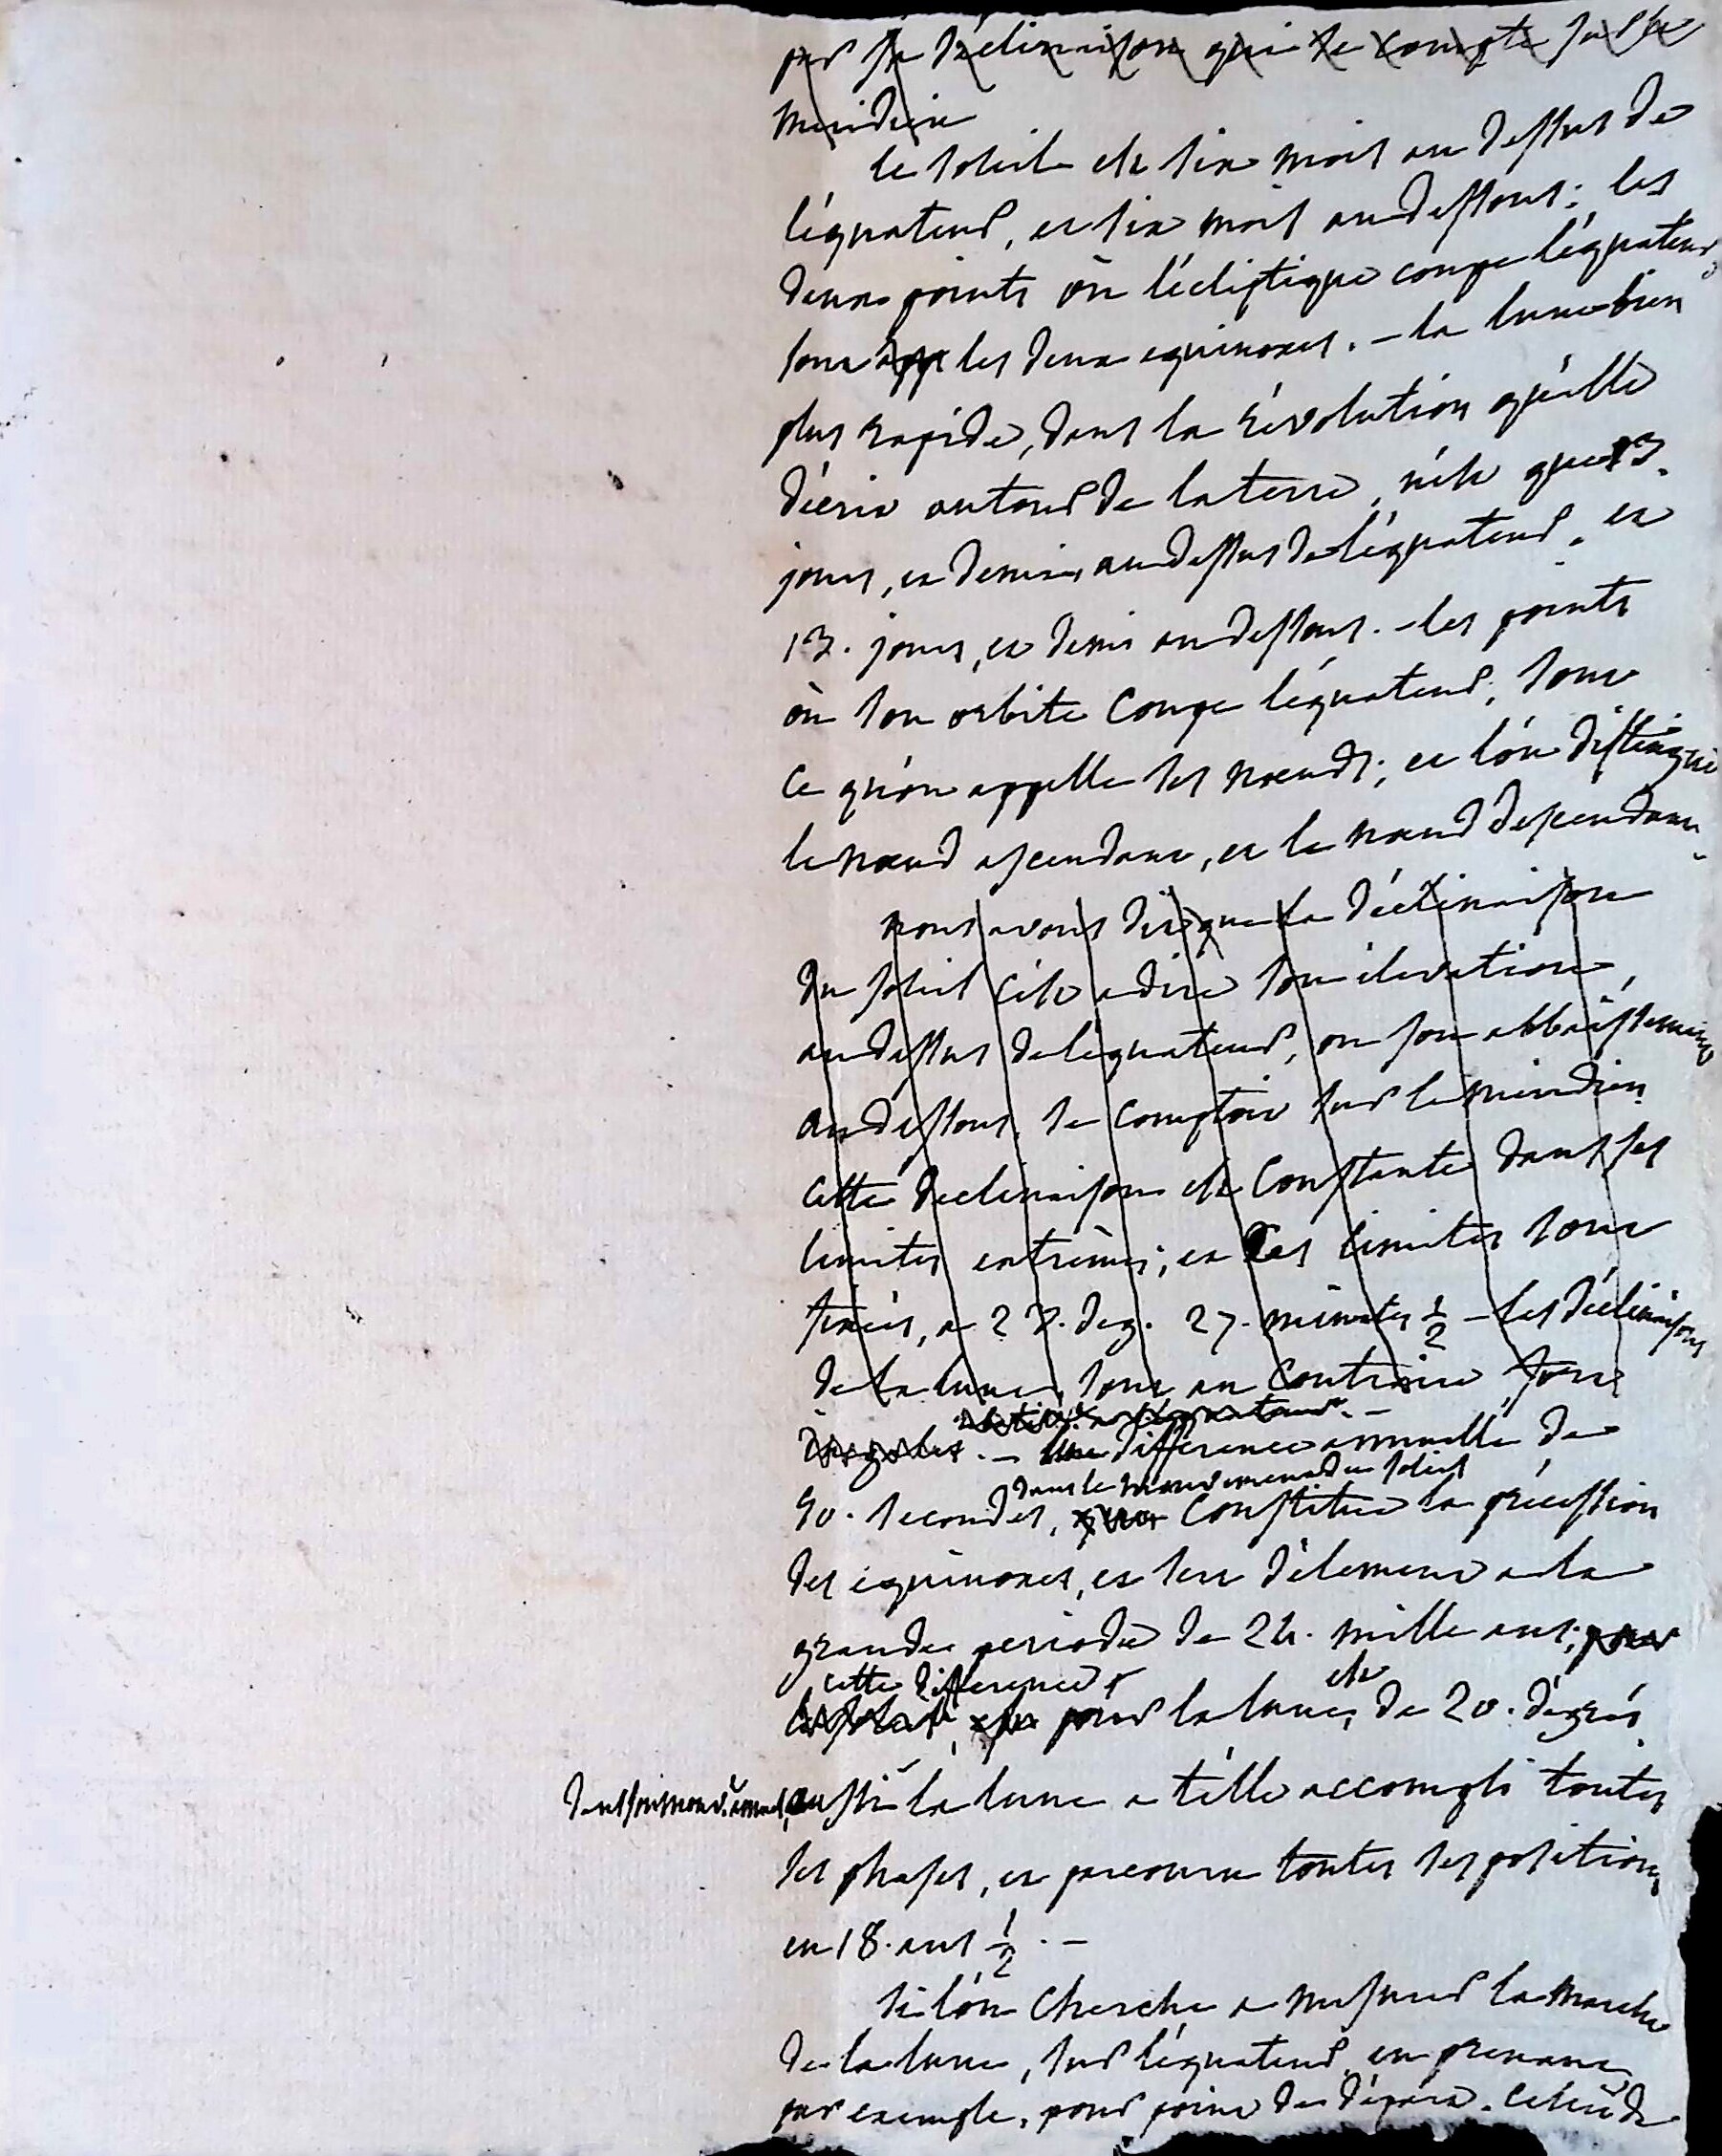 par sa déclinaison qui se compte sur le
meridien
le soleil est six mois au dessus de
l'équateur, et six mois audessous; les
deux points où l'écliptique coupe l'équateur,
sont app les deux equinoxes. – la lune bien
plus rapide, dans la révolution qu'elle
décrit autour de la terre, n'est que 13.
jours, et demi, audessus de l'équateur, et
13. jours, et demi audessous. – les points
où son orbite coupe l'équateur, sont
ce qu'on appelle ses nœuds; et l'on distingue
le nœud ascendant, et le nœud descendant.
nous avons dit que la déclinaison
du soleil c'est adire son élevation,
audessus de l'équateur, ou son abbaissement
audessous, se comptoit sur le meridien.
cette declinaison est constante dans ses
limites extrêmes; et ces limites sont
fixées, a 23. deg. 27. minutes ½ – les déclinaisons
de la lune, sont au contraire fort
inégales. – Une difference annuelle de
dans le mouvement du soleil
50. secondes, constitue la précession
des equinoxes, et sert d'élement a la
grande periode de 24. mille ans;
cette difference est
pour la lune, de 20. dégrés.
dans son mouvement, aussi la lune a t'elle accompli toutes
ses phases, et parcouru toutes ses positions
en 18. ans ½. –
si l'on cherche a mesurer la marche
de la lune, sur l'équateur, en prenant,
par exemple, pour point de départ, celui de